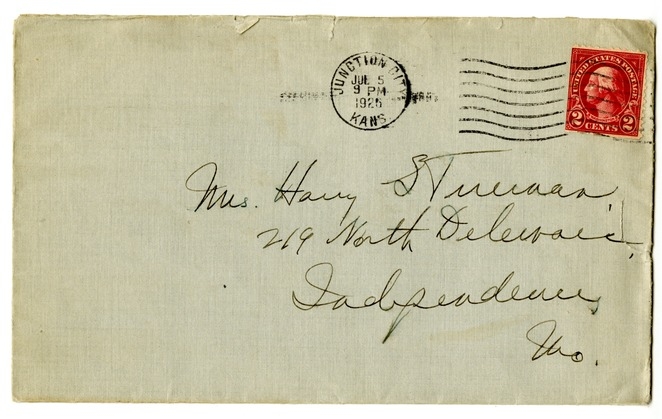 JUNCTION CITY
JUL 5
9 PM
1925
KANS
UNITED STATES POSTAGE
2 CENTS 2
Mrs. Harry S Truman
219 North Delaware
Independence,
Mo.